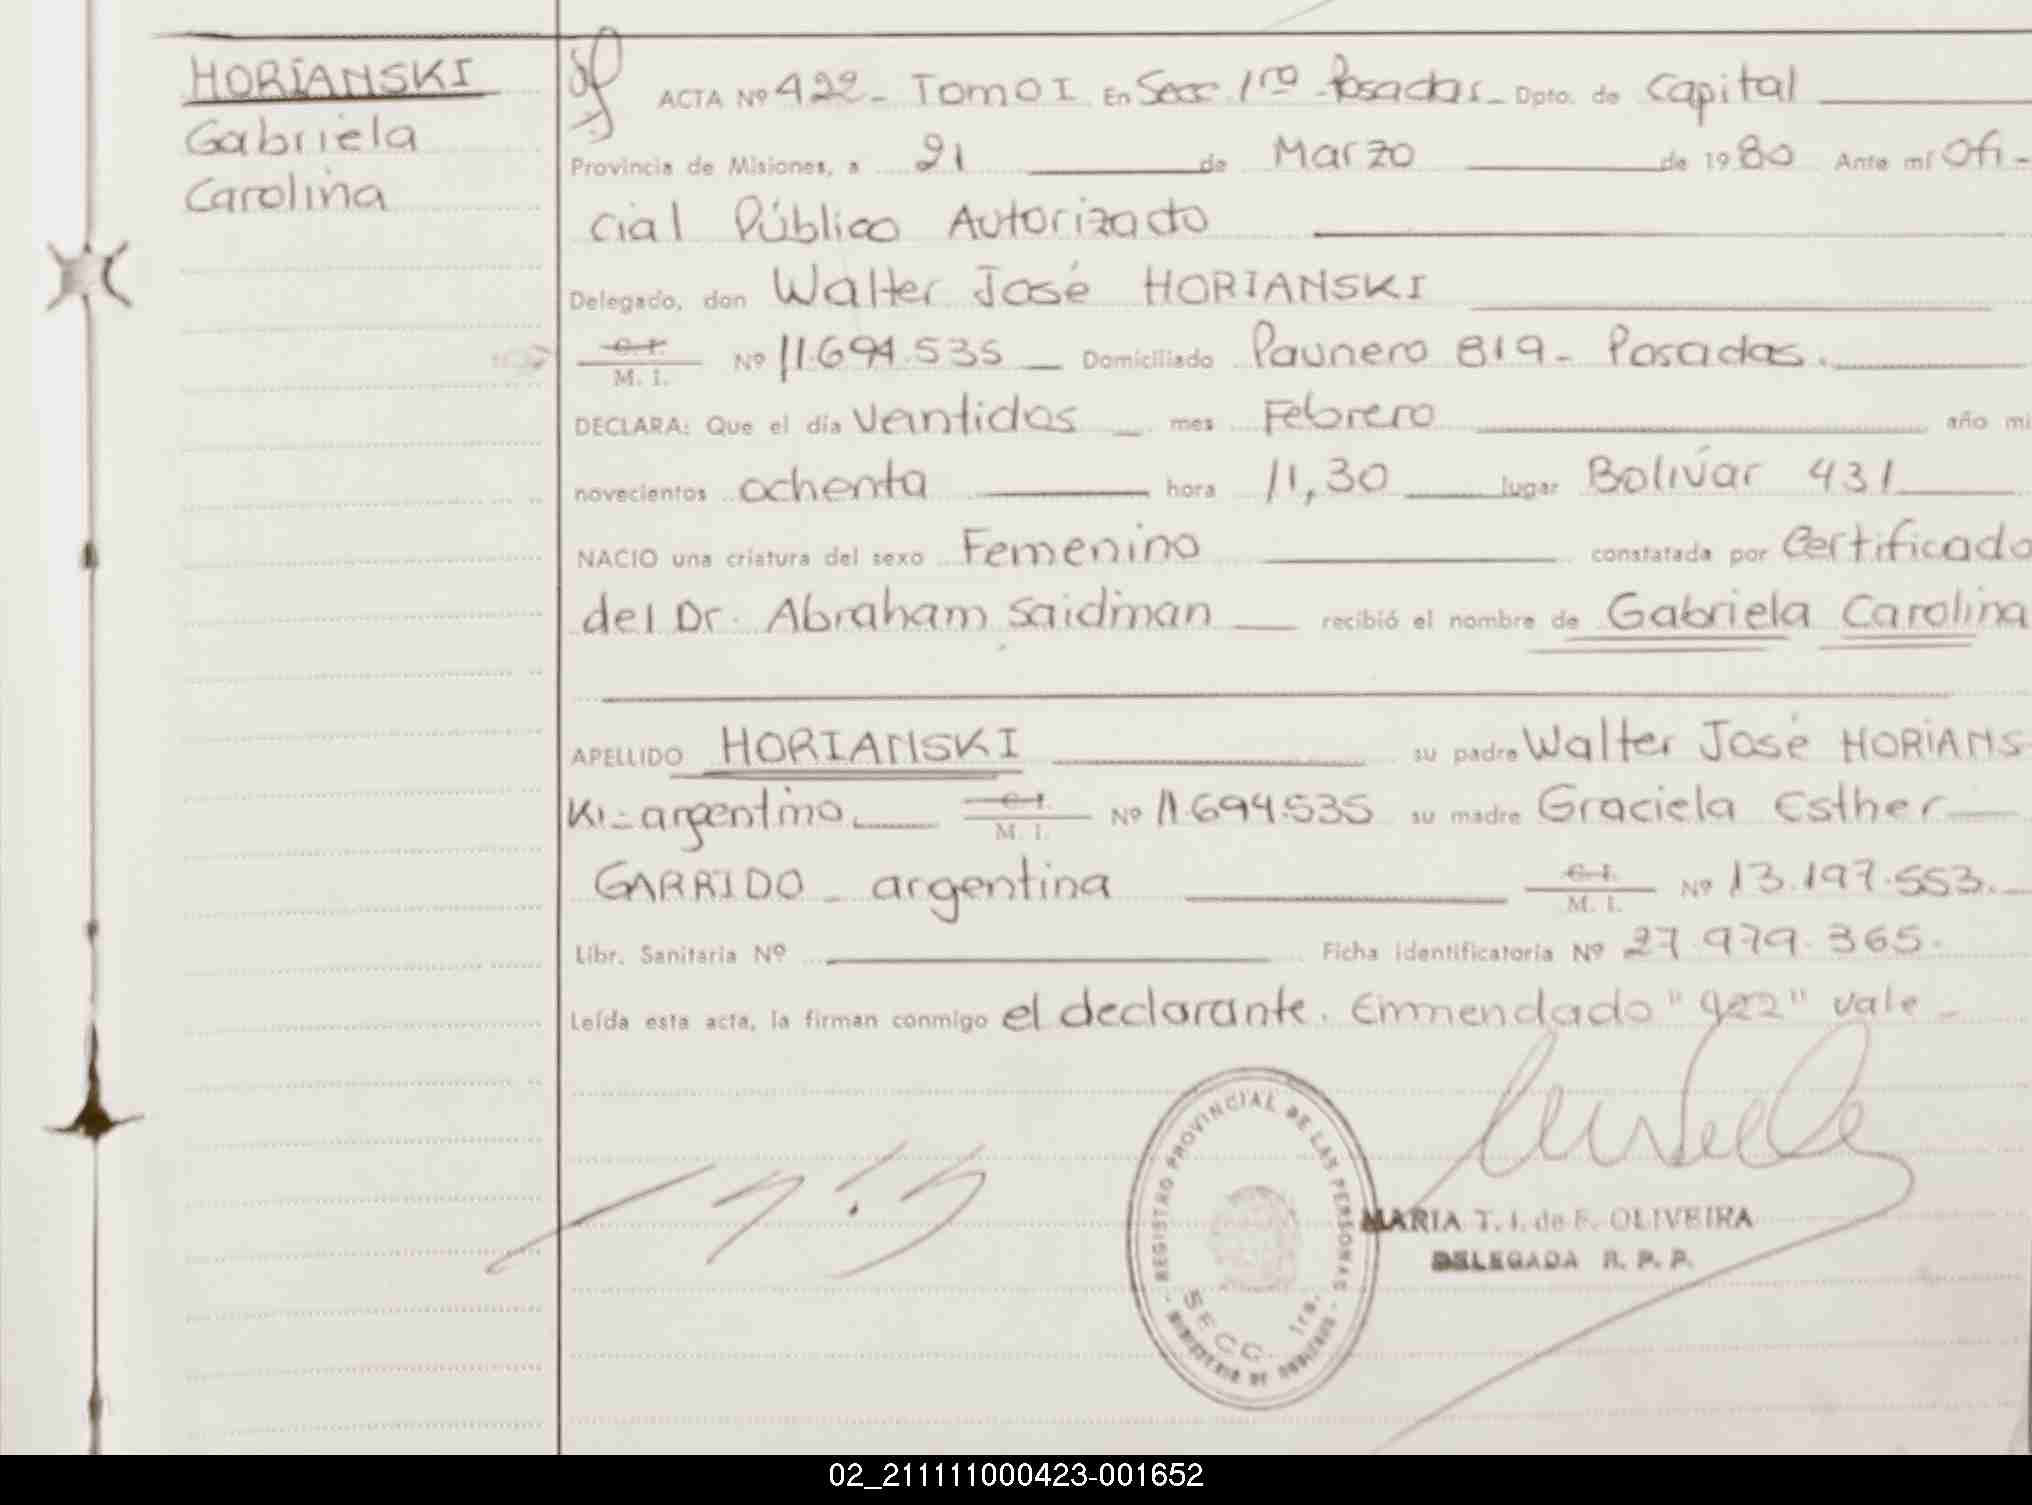 HORIANSKI
Gabriela
Carolina
ACTA Nº 422- TOMO I En Secc 1ra Posadas- Dpto. de Capital
Provincia de Misiones, a 21 de Marzo de 1980 Ante mí Ofi-
cial Público Autorizado
Delegado, don Walter José HORIANSKI
C. I.
M. I. Nº 11.694.535 Domiciliado Paunero 819- Posadas.
DECLARA: Que el día Veintidos mes Febrero año mi
novecientos ochenta hora 11,30 lugar Bolívar 431
NACIO una criatura del sexo Femenino constatada por Certificado
del Dr. Abraham Saidman recibió el nombre de Gabriela Carolina
APELLIDO HORIANSKI su padre Walter José HORIANS-
KI-argentino. C. I.
M. I. Nº 11.694.535 su madre Graciela Esther
GARRIDO- argentina C. I.
M. I. Nº 13.197.553.-
Libr. Sanitaria Nº Ficha identificatoria Nº 27.979.365.
Leída esta acta, la firman conmigo el declarante. Emmendado "422" vale-
REGISTRO PROVINCIAL DE LAS PERSONAS
SECC. 1ra.
MARIA T. I. de F. OLIVEIRA
DELEGADA R. P. P.
02_211111000423-001652